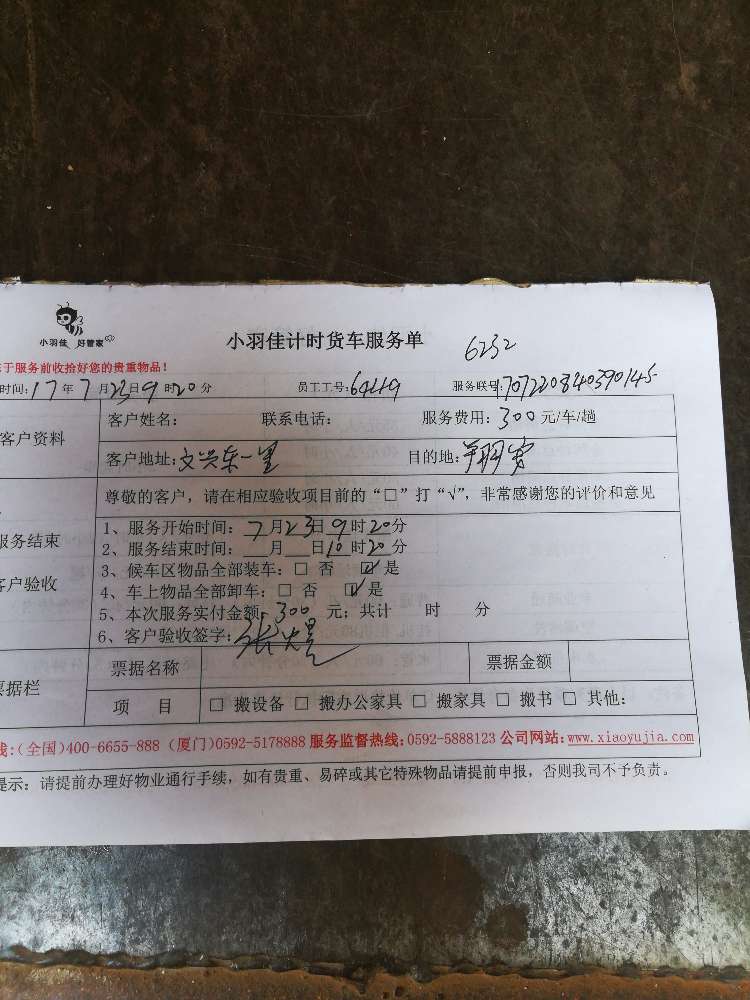 小羽佳 好管家
小羽佳计时货车服务单
6232
于服务前收拾好您的贵重物品！
时间：17年7月23日9时20分 员工工号：64419 服务联号：707220840390145
客户资料
客户姓名： 联系电话： 服务费用：300元/车/趟
客户地址：文兴东一里 目的地：翔安
尊敬的客户，请在相应验收项目前的“□”打“√”，非常感谢您的评价和意见
服务结束
客户验收
1、服务开始时间：7月23日9时20分
2、服务结束时间： 月 日10时20分
3、候车区物品全部装车：□ 否 ☑ 是
4、车上物品全部卸车：□ 否 ☑ 是
5、本次服务实付金额：300元；共计 时 分
6、客户验收签字：张
票据栏
票据名称 票据金额
项 目 □ 搬设备 □ 搬办公家具 □ 搬家具 □ 搬书 □ 其他：
线：(全国)400-6655-888 (厦门)0592-5178888 服务监督热线：0592-5888123 公司网站：www.xiaoyujia.com
提示：请提前办理好物业通行手续，如有贵重、易碎或其它特殊物品请提前申报，否则我司不予负责。